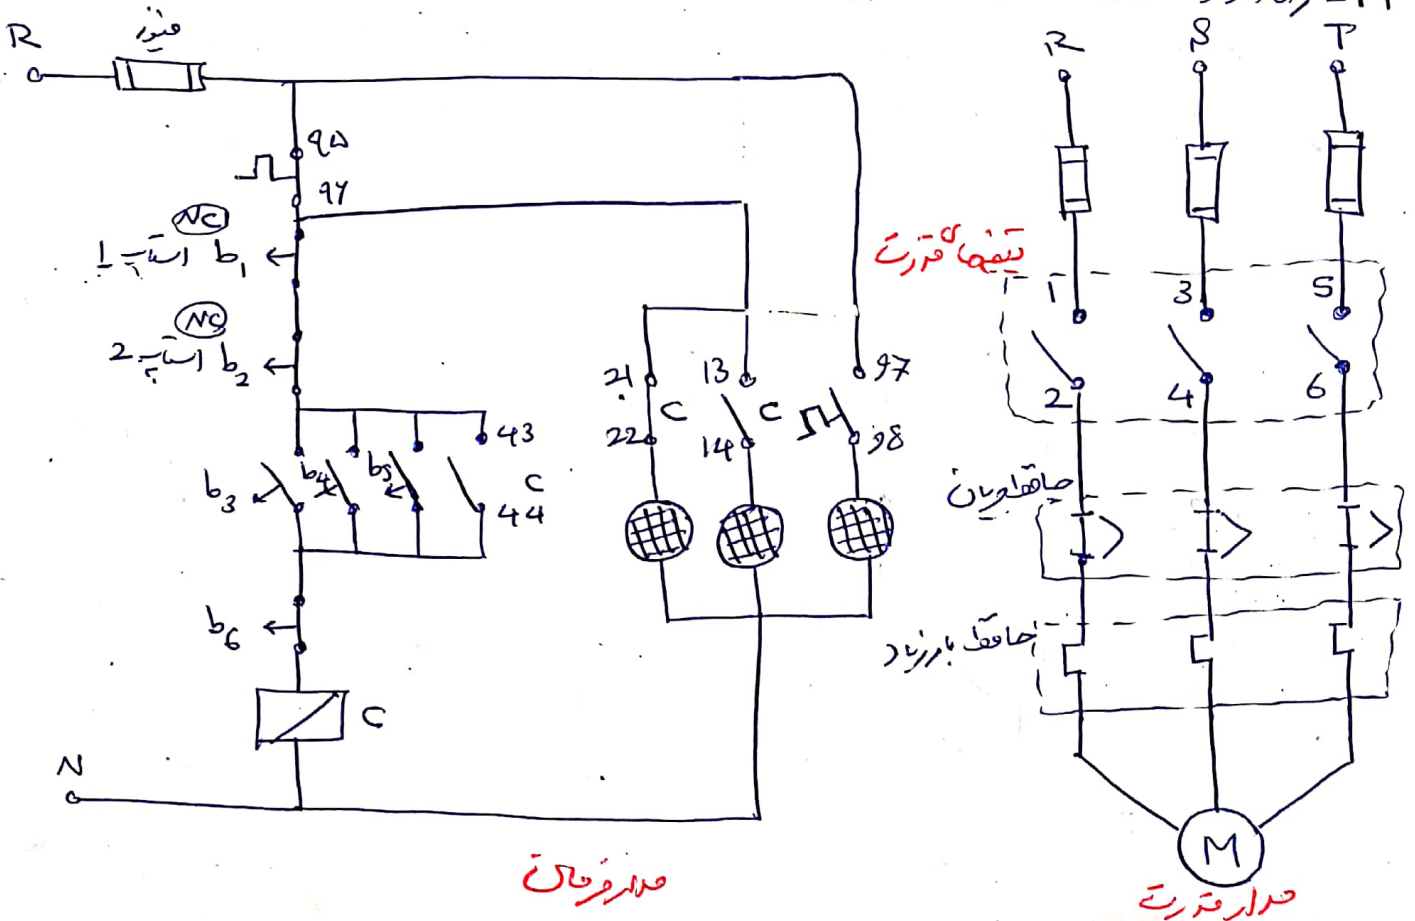 R
فیوز
۹۵
۹۶
NC
استاپ 1 b1
NC
استاپ 2 b2
b3
b4
b5
43
C
44
b6
C
N
21
C
22
13
C
14
97
98
مدار فرمان
R
S
T
تیغه‌های قدرت
1
3
5
2
4
6
حافظ جریان
حافظ بار زیاد
M
مدار قدرت